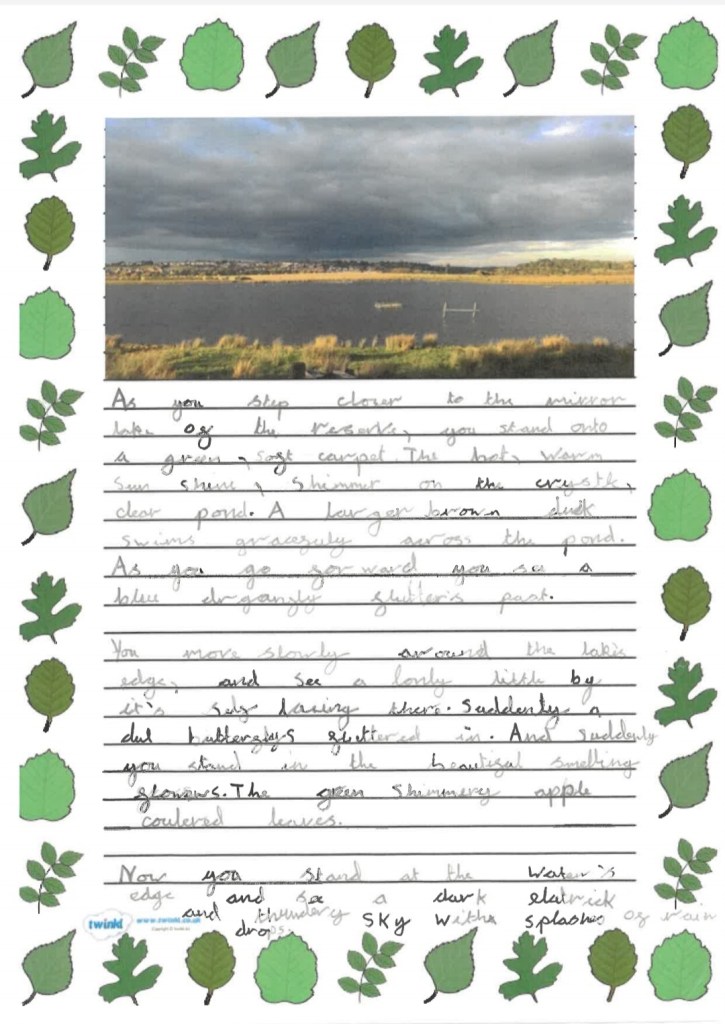 As you step closer to the mirror
lake of the reserve, you stand onto
a green, soft carpet. The hot, warm
sun shine, shimmer on the crystle,
clear pond. A larger brown duck
swims gracefuly across the pond.
As you go forward you see a
blue drganfly flutter's past.
You move slowly around the lake's
edge, and see a lonly little by
it's self there. Suddenly a
dul butterflys fluttered in. And suddedly
you stand in the beautifal smelling
flowows. The green shimmery apple
coulered leaves.
Now you stand at the water's
edge and see a dark elatrick
and thundery sky with splashes of rain
drops.
twinkl www.twinkl.co.uk